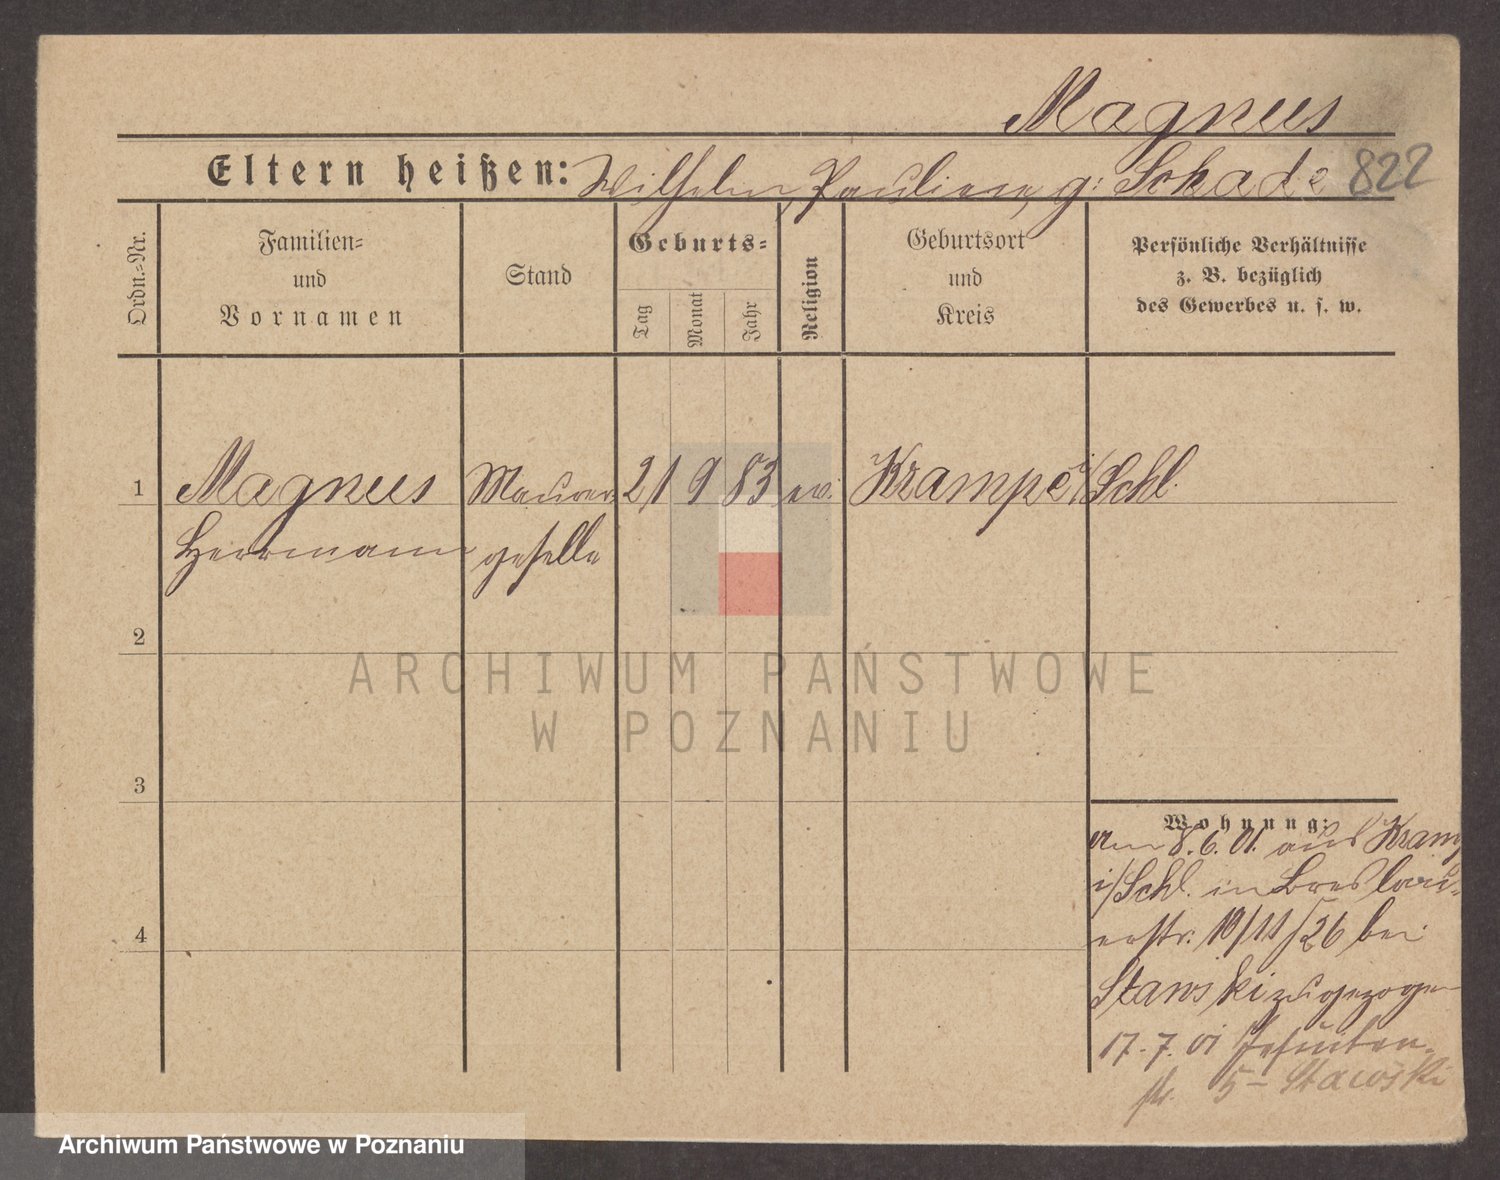 Magnus
Eltern heißen: Wilhelm, Pauline, g: Schade 822
Ordn.-Nr.
Familien-
und
Vornamen
Stand
Geburts-
Tag
Monat
Jahr
Religion
Geburtsort
und
Kreis
Persönliche Verhältnisse
z. B. bezüglich
des Gewerbes u. s. w.
1 Magnus Maurer- 21 9 83 ev. Krampe i/Schl.
Herrmann geselle
2
ARCHIWUM PAŃSTWOWE
W POZNANIU
3
Wohnung:
am 8.6.01. aus Kramp
i/Schl. in Breslau-
erstr. 10/11/26 bei
Stawski zugezogen
17.7.01 Jesuiten-
str. 5 - Stawski
4
Archiwum Państwowe w Poznaniu